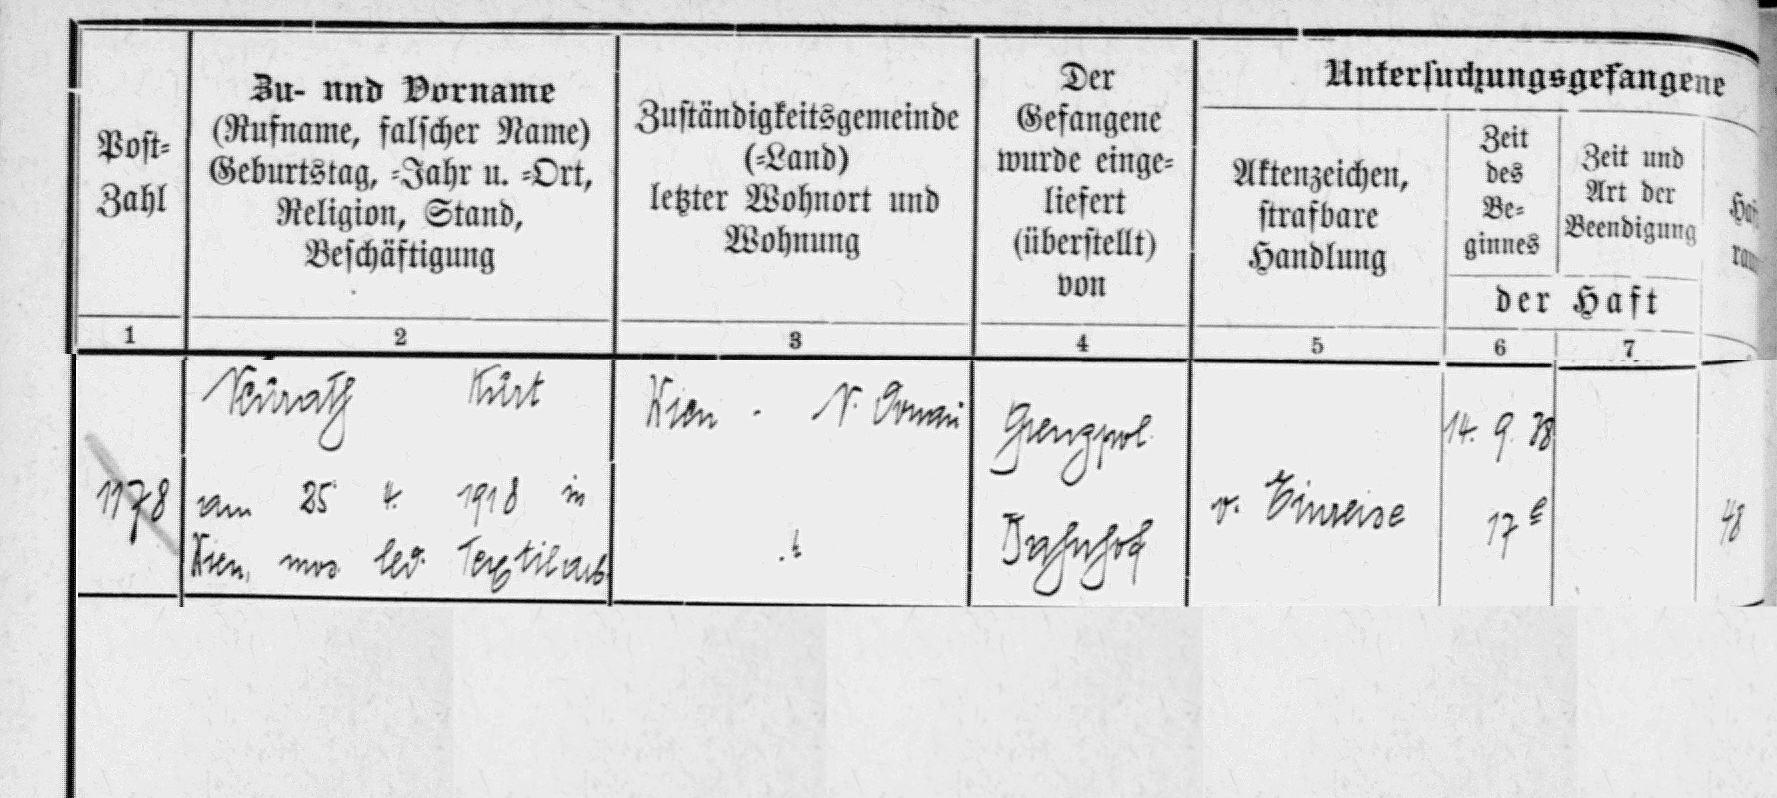 Untersuchungsgefangene
Post-
Zahl
Zu- und Vorname
(Rufname, falscher Name)
Geburtstag, -Jahr u. -Ort,
Religion, Stand,
Beschäftigung
Zuständigkeitsgemeinde
(-Land)
letzter Wohnort und
Wohnung
Der
Gefangene
wurde einge-
liefert
(überstellt)
von
Aktenzeichen,
strafbare
Handlung
Zeit
des
Be-
ginnes
Zeit und
Art der
Beendigung
der Haft
1 2 3 4 5 6 7
1178
Neurath Kurt
am 25 4. 1918 in
Wien, mos led. Textilarb.
Wien - N. Donau
Grenzpol.
Bahnhof
v. Einreise
14. 9. 38
17 e
48